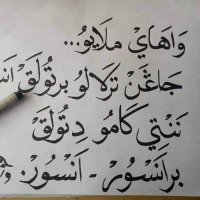 وَاهَايْ مَلَايُو...
جَاڠَنْ تَرْلَالُو بَرْتُولَقْ
نَنْتِي كَامُو دِتُولَقْ
بَرْاَنْسُورْ - اَنْسُورْ.